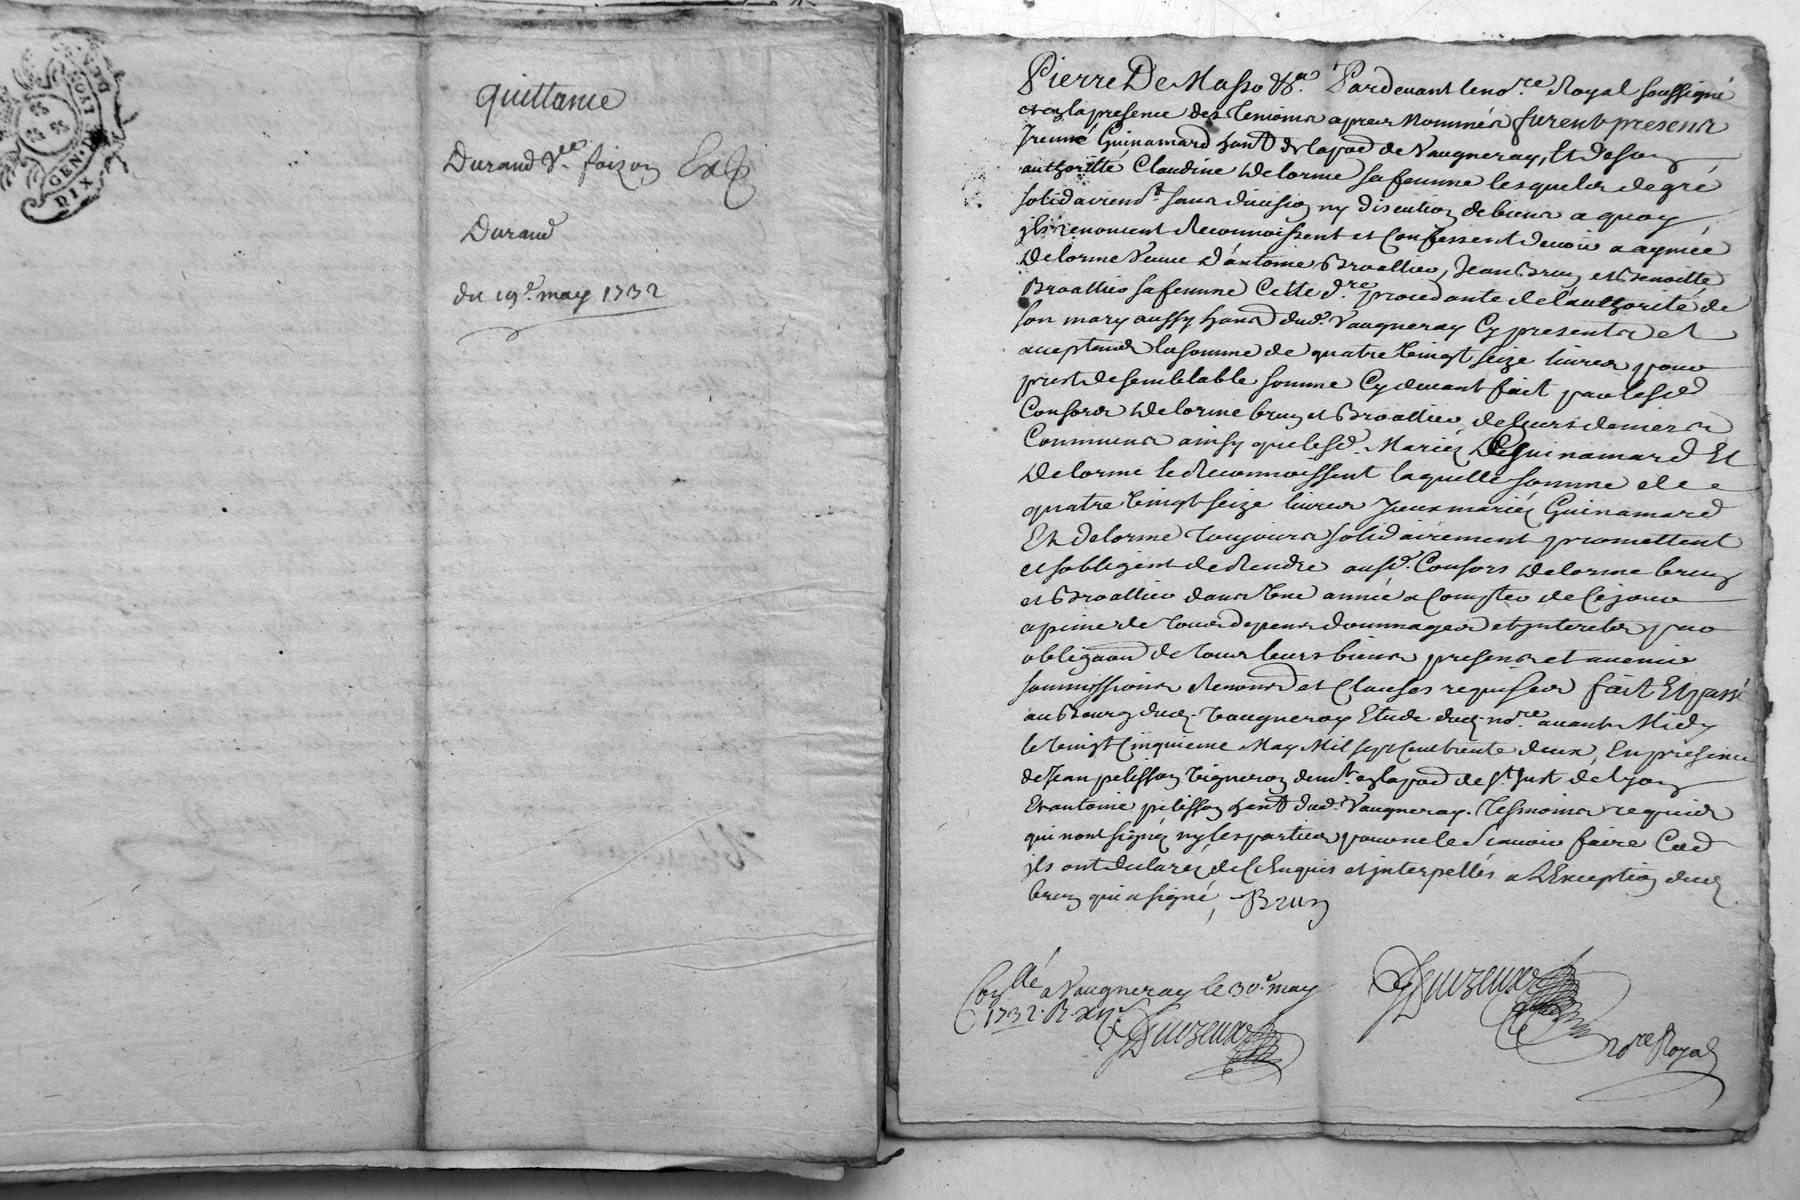 GEN. DE LYON
DIX
quittance
Durand Vve. foizon
Durand
du 19e. may 1732
Pierre De Masso &a. Pardevant le nore Royal soussigné
et en la presence des temoins apres nommés furent presens
Irenné Guinamard hant de la pad de Vaugneray, Et de son
authoritté Claudine Delorme sa femme lesquels de gré
solidairemt. sans division ny discution de biens a quoy
ils renoncent Reconnoissent et Confessent devoir a aymée
Delorme veuve d'antoine Broallier, Jean Brun et Benoitte
Broallier sa femme Cette dre. procedante de l'authorité de
son mary aussy hans dud. Vaugneray Cy presents et
acceptans la somme de quatre vingt seize livres pour
prest de semblable somme Cy devant fait par lesd
Consors Delorme brun et Broallier de leurs deniers
Communs ainsy que lesd. Mariés De Guinamard Et
Delorme le Reconnoissent laquelle somme de
quatre vingt seize livres Iceux mariés Guinamard
Et Delorme toujours solidairement promettent
et sobligent de Rendre ausd. Consors Delorme brun
et Broallier dans Une année a Compter de Ce jour
a peine de tous depens dommages et interets par
obligaon de tous leurs biens presens et avenir
soummissions Renons et Clauses requises fait Et passé
au Bourg dud. Vaugneray Etude dud. nore avant Midy
le vingt Cinquieme May Mil sept Cent trente deux, En presence
de Jean pelisson vigneron demt. en la pad de st Just de Lyon
Et antoine pelisson hant dud. Vaugneray. tesmoins requis
qui n'ont signés ny les parties pour ne le scavoir faire Co
ils ont declarés de Ce Enquis et interpellés a L'Exception dud
brun qui a signé, Brun
Conllé a Vaugneray le 30e. may
1732. R. xij s.
nore Royal